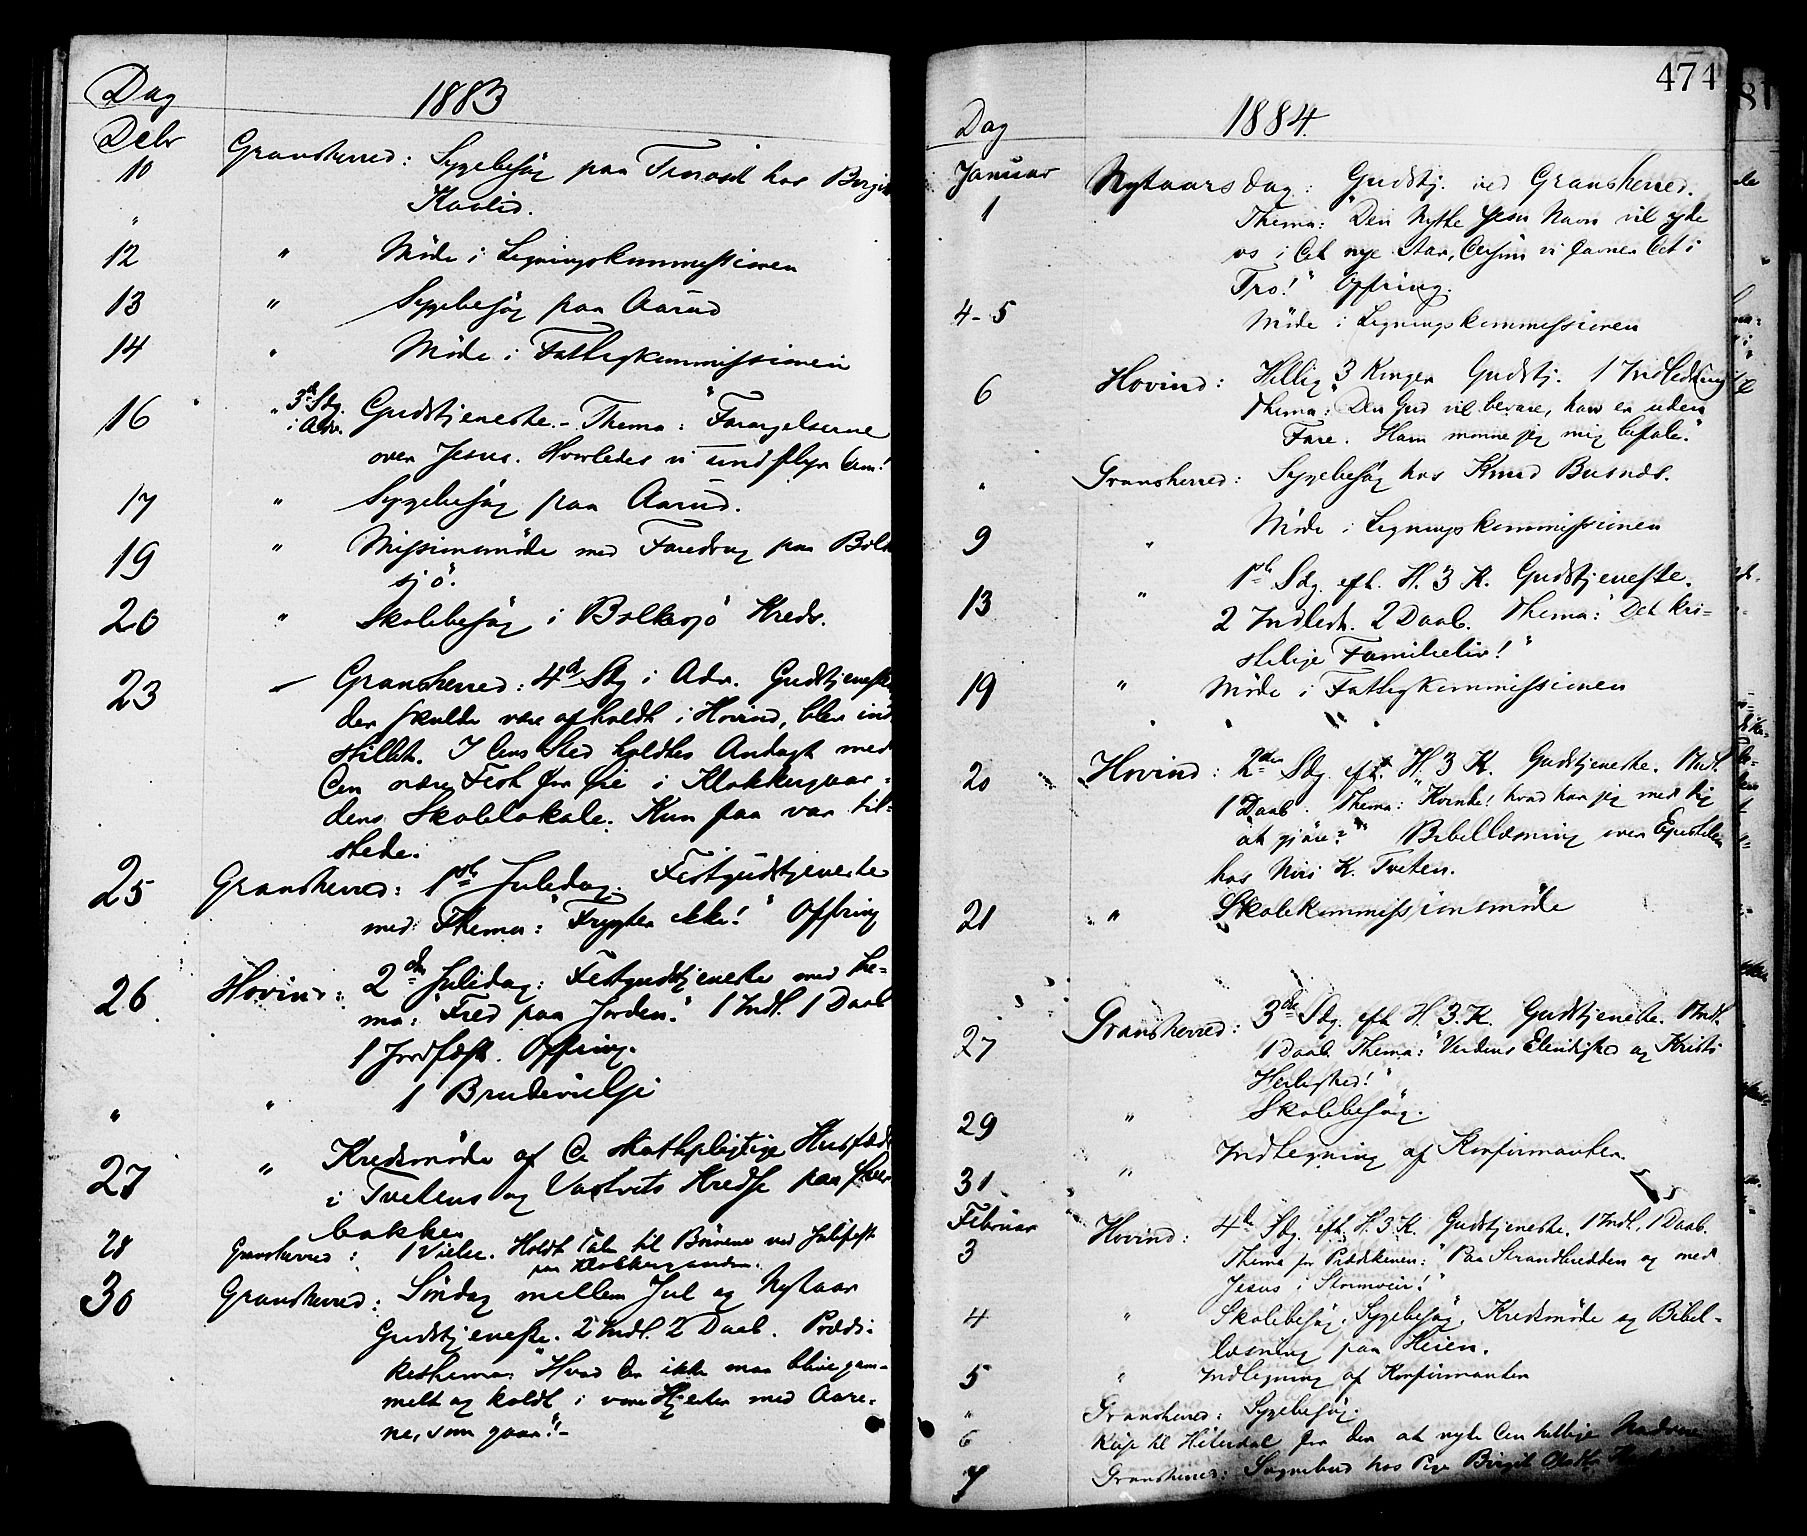 Dag
1883
Debr
10 Gransherred: Sygebesøg paa Tinoset hos Birgit
Kaalid.
12 " Møde i Ligningskommissionen
13 " Sygebesøg paa Aarud
14 " Møde i Fattigkommissionen
16 " 3d Sdg. i Adv. Gudstjeneste. - Thema: "Forargelserne
over Jesus. Hvorledes vi undflyr dem!
17 " Sygebesøg paa Aarud.
19 " Missionsmøde med Foredrag paa Bolke
sjø.
20 " Skolebesøg i Bolkesjø Kreds.
23 - Gransherred: 4d Sdg i Adv. Gudstjeneste
der skulde være afholdt i Hovind, blev ind
stillet. I dens Sted holdtes Andagt med
den nære Fest for Øie i Klokkergaar-
dens Skolelokale. Kun faa var til-
stede.
25 Gransherred: 1ste Juledag. Festgudstjeneste
med Thema: "Frygter ikke!" Offring
26 Hovind: 2den Juledag: Festgudstjeneste med The-
ma: "Fred paa Jorden." 1 Indl. 1 Daab
1 Jordfæst. Offring.
" " 1 Brudevielse
27 " Kredsmøde af de skatpligtige Husfædre
i Tvetens og Vastveits Kredse paa
bakken
28 Gransherred: 1 Vielse. Holdt Tale til Børnene ved Julefest
paa Klokkergaarden.
30 Gransherred: Søndag mellem Jul og Nytaar
Gudstjeneste. 2 Indl. 2 Daab. Prædi-
kethema: "Hvad der ikke maa blive gam-
melt og koldt i vore Hjerter med Aare-
ne, som gaar!"-
474
Dag
1884.
Januar
1 Nytaarsdag: Gudstj. ved Gransherred.
Thema: "Den Nytte Jesu Navn vil yde
os i det nye Aar, dersom vi favner det i
Tro!" Offring.
4-5 Møde i Ligningskommissionen
6 Hovind: Hellig 3 Konger Gudstj. 1 Indledning
Thema: "Den Gud vil bevare, han er uden
Fare. Ham monne jeg mig befale."
" Gransherred: Sygebesøg hos Knud Busnes.
9 " Møde i Ligningskommissionen
13 " 1ste Sdg. eft. H. 3 K. Gudstjeneste.
2 Indledn. 2 Daab. Thema: "Det kri-
stelige Familieliv!"
19 " Møde i Fattigkommissionen
20 Hovind: 2den Sdg. eft. H. 3 K. Gudstjeneste. 1 Indl.
1 Daab. Thema: "Kvinde! hvad har jeg med dig
at gjøre?" Bibellæsning over Epistelen
hos Niri K. Tveten.
21 " Skolekommissionsmøde
27 Gransherred: 3die Sdg. eft H. 3. K. Gudstjeneste. 1 Indl.
1 Daab. Thema: "Verdens Elendighed og Kristi
Herlighed!"
29 " Skolebesøg.
31 " Indtegning af Konfirmanter.
Februar
3 Hovind: 4de Sdg. eft H. 3 K. Gudstjeneste. 1 Indl. 1 Daab.
Thema for Prædikenen: "Paa Strandbredden og med
Jesus i Stormveir!"
4 " Skolebesøg. Sygebesøg. Kredsmøde og Bibel-
læsning paa Heien.
5 " Indtegning af Konfirmanter
" Gransherred: Sygebesøg.
6 Reise til Hiterdal for der at nyde den hellige Nadvere
7 Gransherred: Sognebud hos Pige Birgit